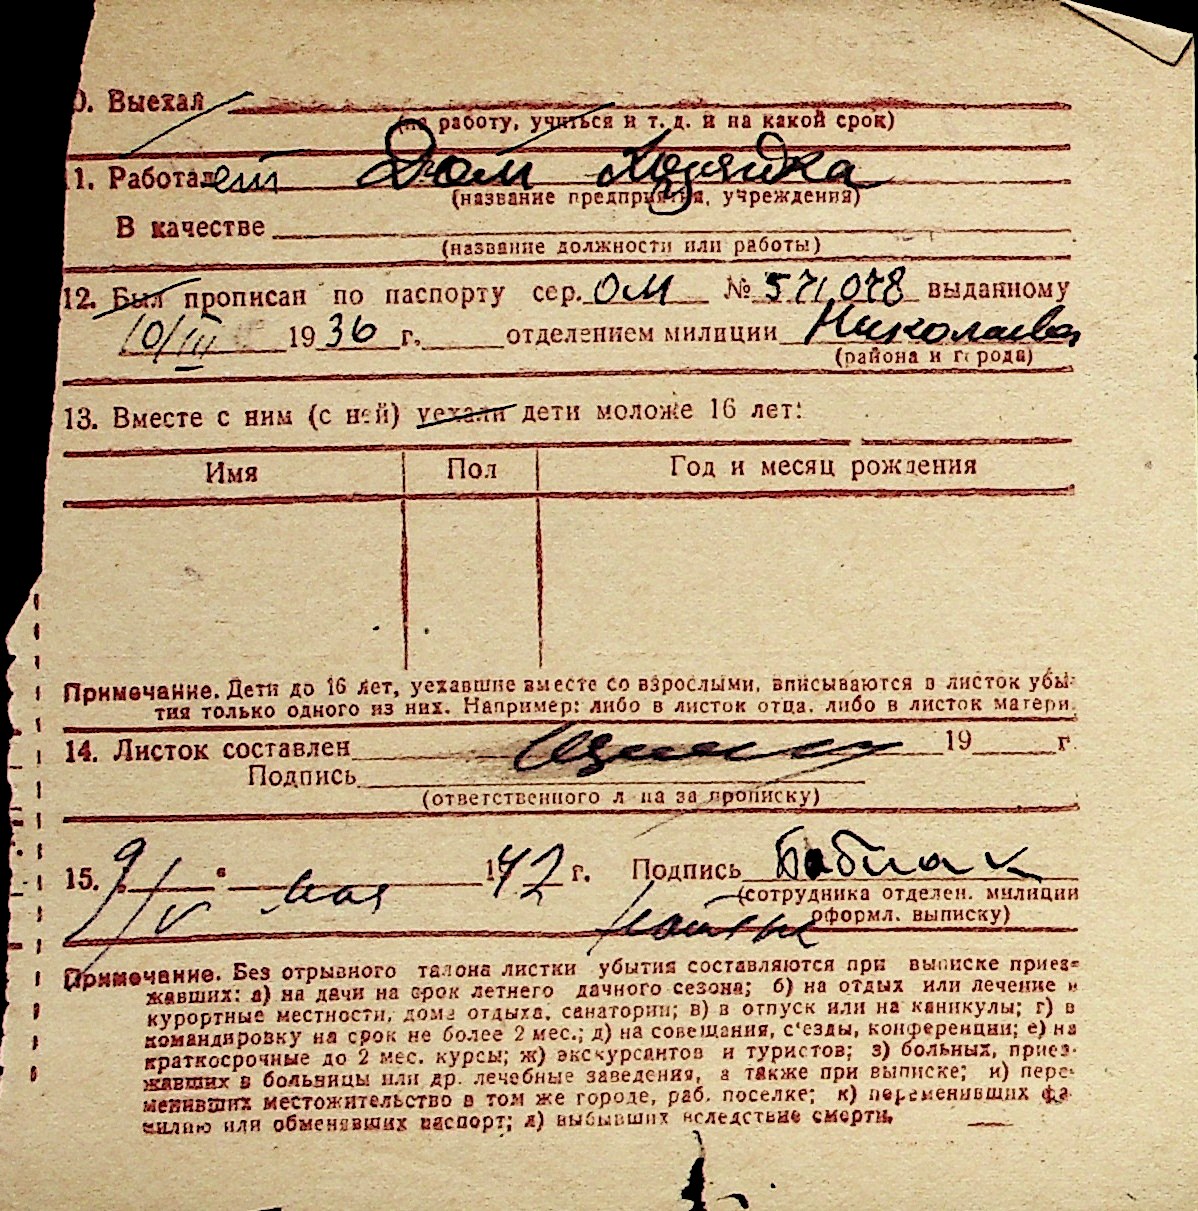 0. Выехал
(на работу, учиться и т. д. и на какой срок)
11. Работает Дом Хозяйка
(название предприятия, учреждения)
В качестве
(название должности или работы)
12. Был прописан по паспорту сер. ОМ № 571078 выданному
10/III 1936 г. отделением милиции Николаева
(района и города)
13. Вместе с ним (с ней) уехали дети моложе 16 лет:
Имя Пол Год и месяц рождения
Примечание. Дети до 16 лет, уехавшие вместе со взрослыми, вписываются в листок убы-
тия только одного из них. Например: либо в листок отца, либо в листок матери.
14. Листок составлен 19 г.
Подпись
(ответственного лица за прописку)
15. 9/V мая 1942 г. Подпись
(сотрудника отделен. милиции
оформл. выписку)
Примечание. Без отрывного талона листки убытия составляются при выписке приез-
жавших: а) на дачи на срок летнего дачного сезона; б) на отдых или лечение в
курортные местности, дома отдыха, санатории; в) в отпуск или на каникулы; г) в
командировку на срок не более 2 мес.; д) на совещания, с'езды, конференции; е) на
краткосрочные до 2 мес. курсы; ж) экскурсантов и туристов; з) больных, приез-
жавших в больницы или др. лечебные заведения, а также при выписке; и) пере-
менивших местожительство в том же городе, раб. поселке; к) переменивших фа-
милию или обменявших паспорт; л) выбывших вследствие смерти.